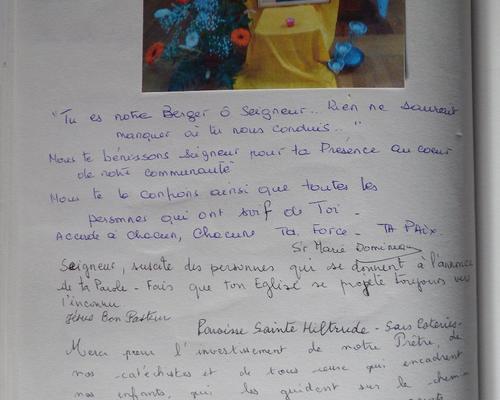 "Tu es notre Berger ô Seigneur... Rien ne saurait
manquer où tu nous conduis..."
Nous te bénissons Seigneur pour ta Présence au coeur
de notre communauté
Nous te la confions ainsi que toutes les
personnes qui ont soif de Toi.
Accorde à chacun, chacune Ta Force - Ta Paix.
Sr Marie Dominique
Seigneur, suscite des personnes qui se donnent à l'annonce
de ta Parole - Fais que ton Eglise se projète toujours vers
l'inconnu.
Jésus Bon Pasteur
Paroisse Sainte Hiltrude - Sars Poteries -
Merci pour l'investissement de notre Prêtre, de
nos catéchistes et de tous ceux qui encadrent
nos enfants, qui les guident sur le chemin